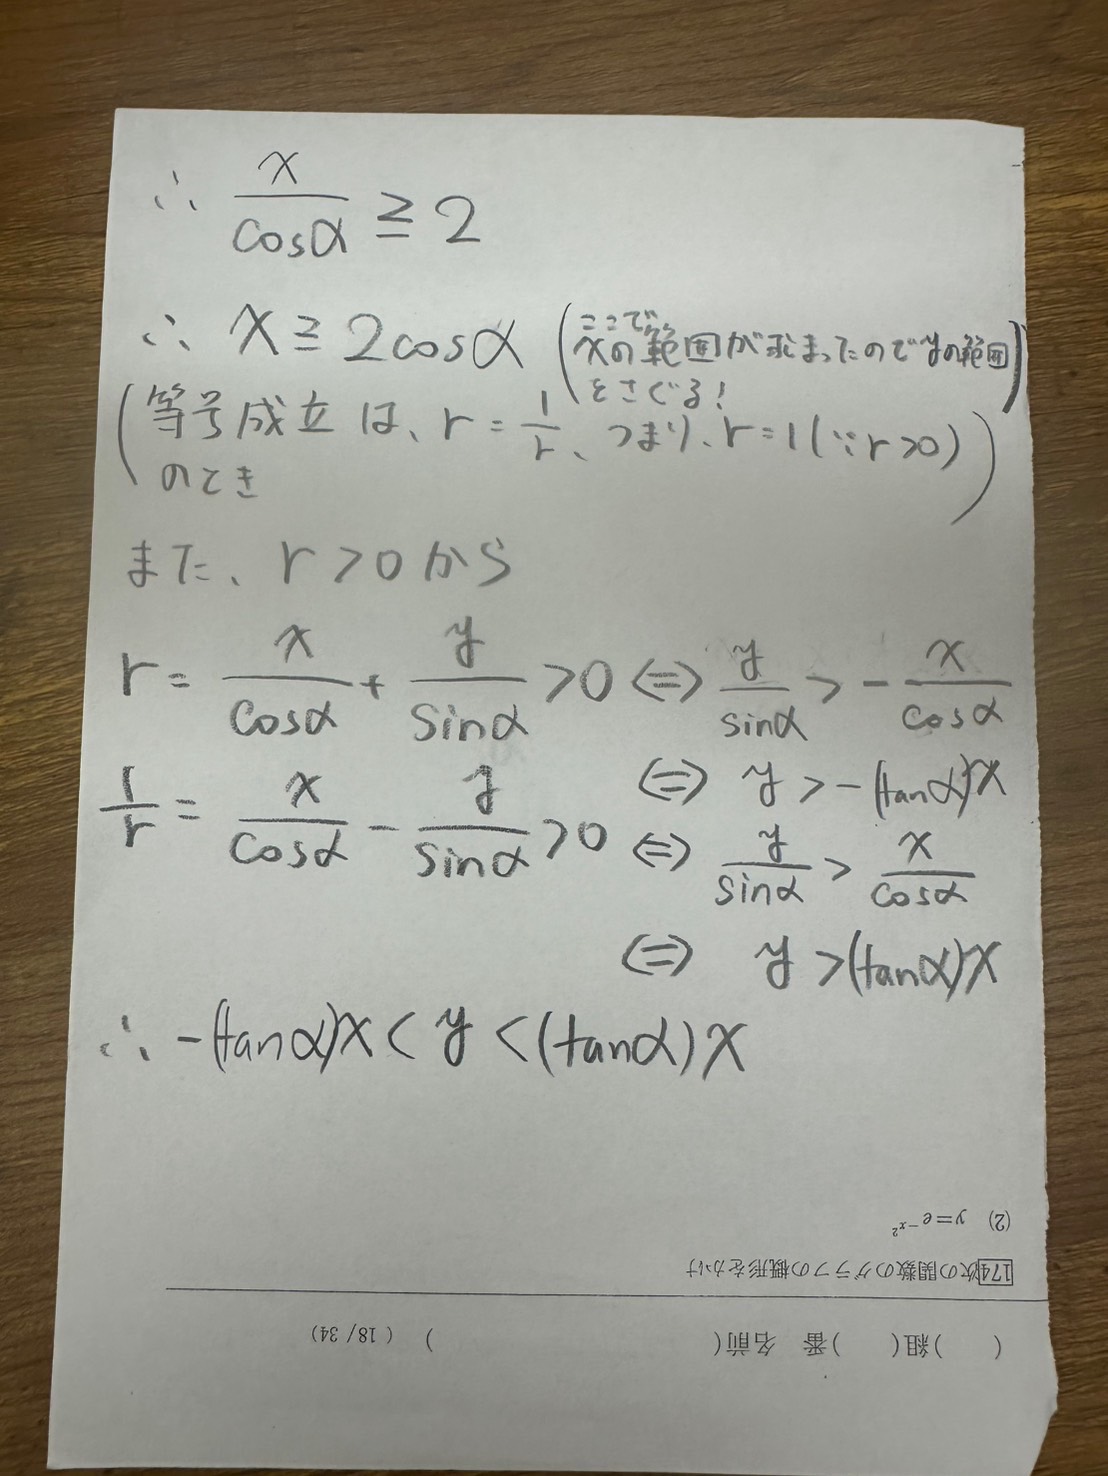 ∴ x/cosα ≧ 2
∴ x ≧ 2cosα (ここでxの範囲が求まったのでyの範囲をさぐる!)
(等号成立は、r = 1/r、つまり、r = 1 (∵ r > 0)
のとき)
また、r > 0 から
r = x/cosα + y/sinα > 0 ⇔ y/sinα > - x/cosα
⇔ y > -(tanα)x
1/r = x/cosα - y/sinα > 0 ⇔ y/sinα > x/cosα
⇔ y > (tanα)x
∴ -(tanα)x < y < (tanα)x
( )組( )番 名前( ) (18/34)
174 次の関数のグラフの概形をかけ
(2) y=e^{-x^2}